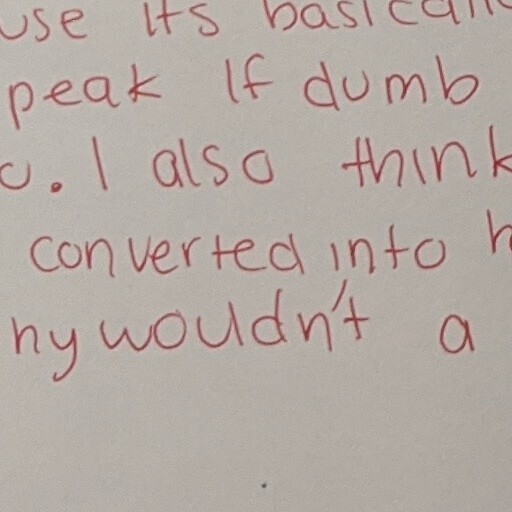 use its basicall
peak If dumb
o. I also think
converted into h
ny wouldn't a